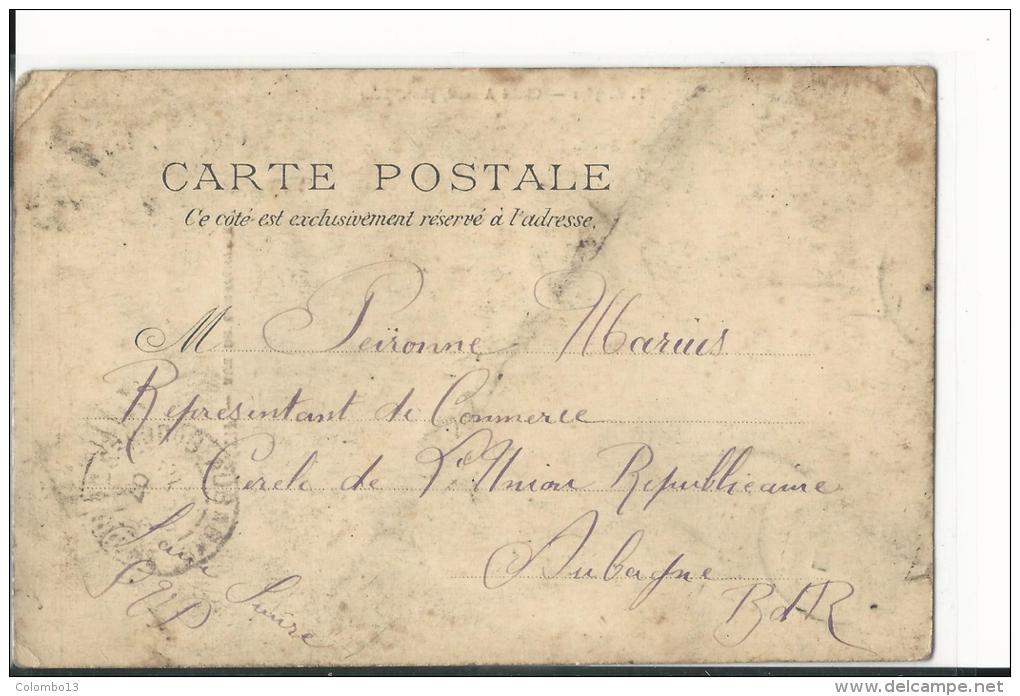 CARTE POSTALE
Ce côté est exclusivement réservé à l'adresse.
M Peironne Marius
Représentant de Commerce
Cercle de l'Union Republicaine
Aubagne
BdR
Faire Suivre
Colombo13
www.delcampe.net